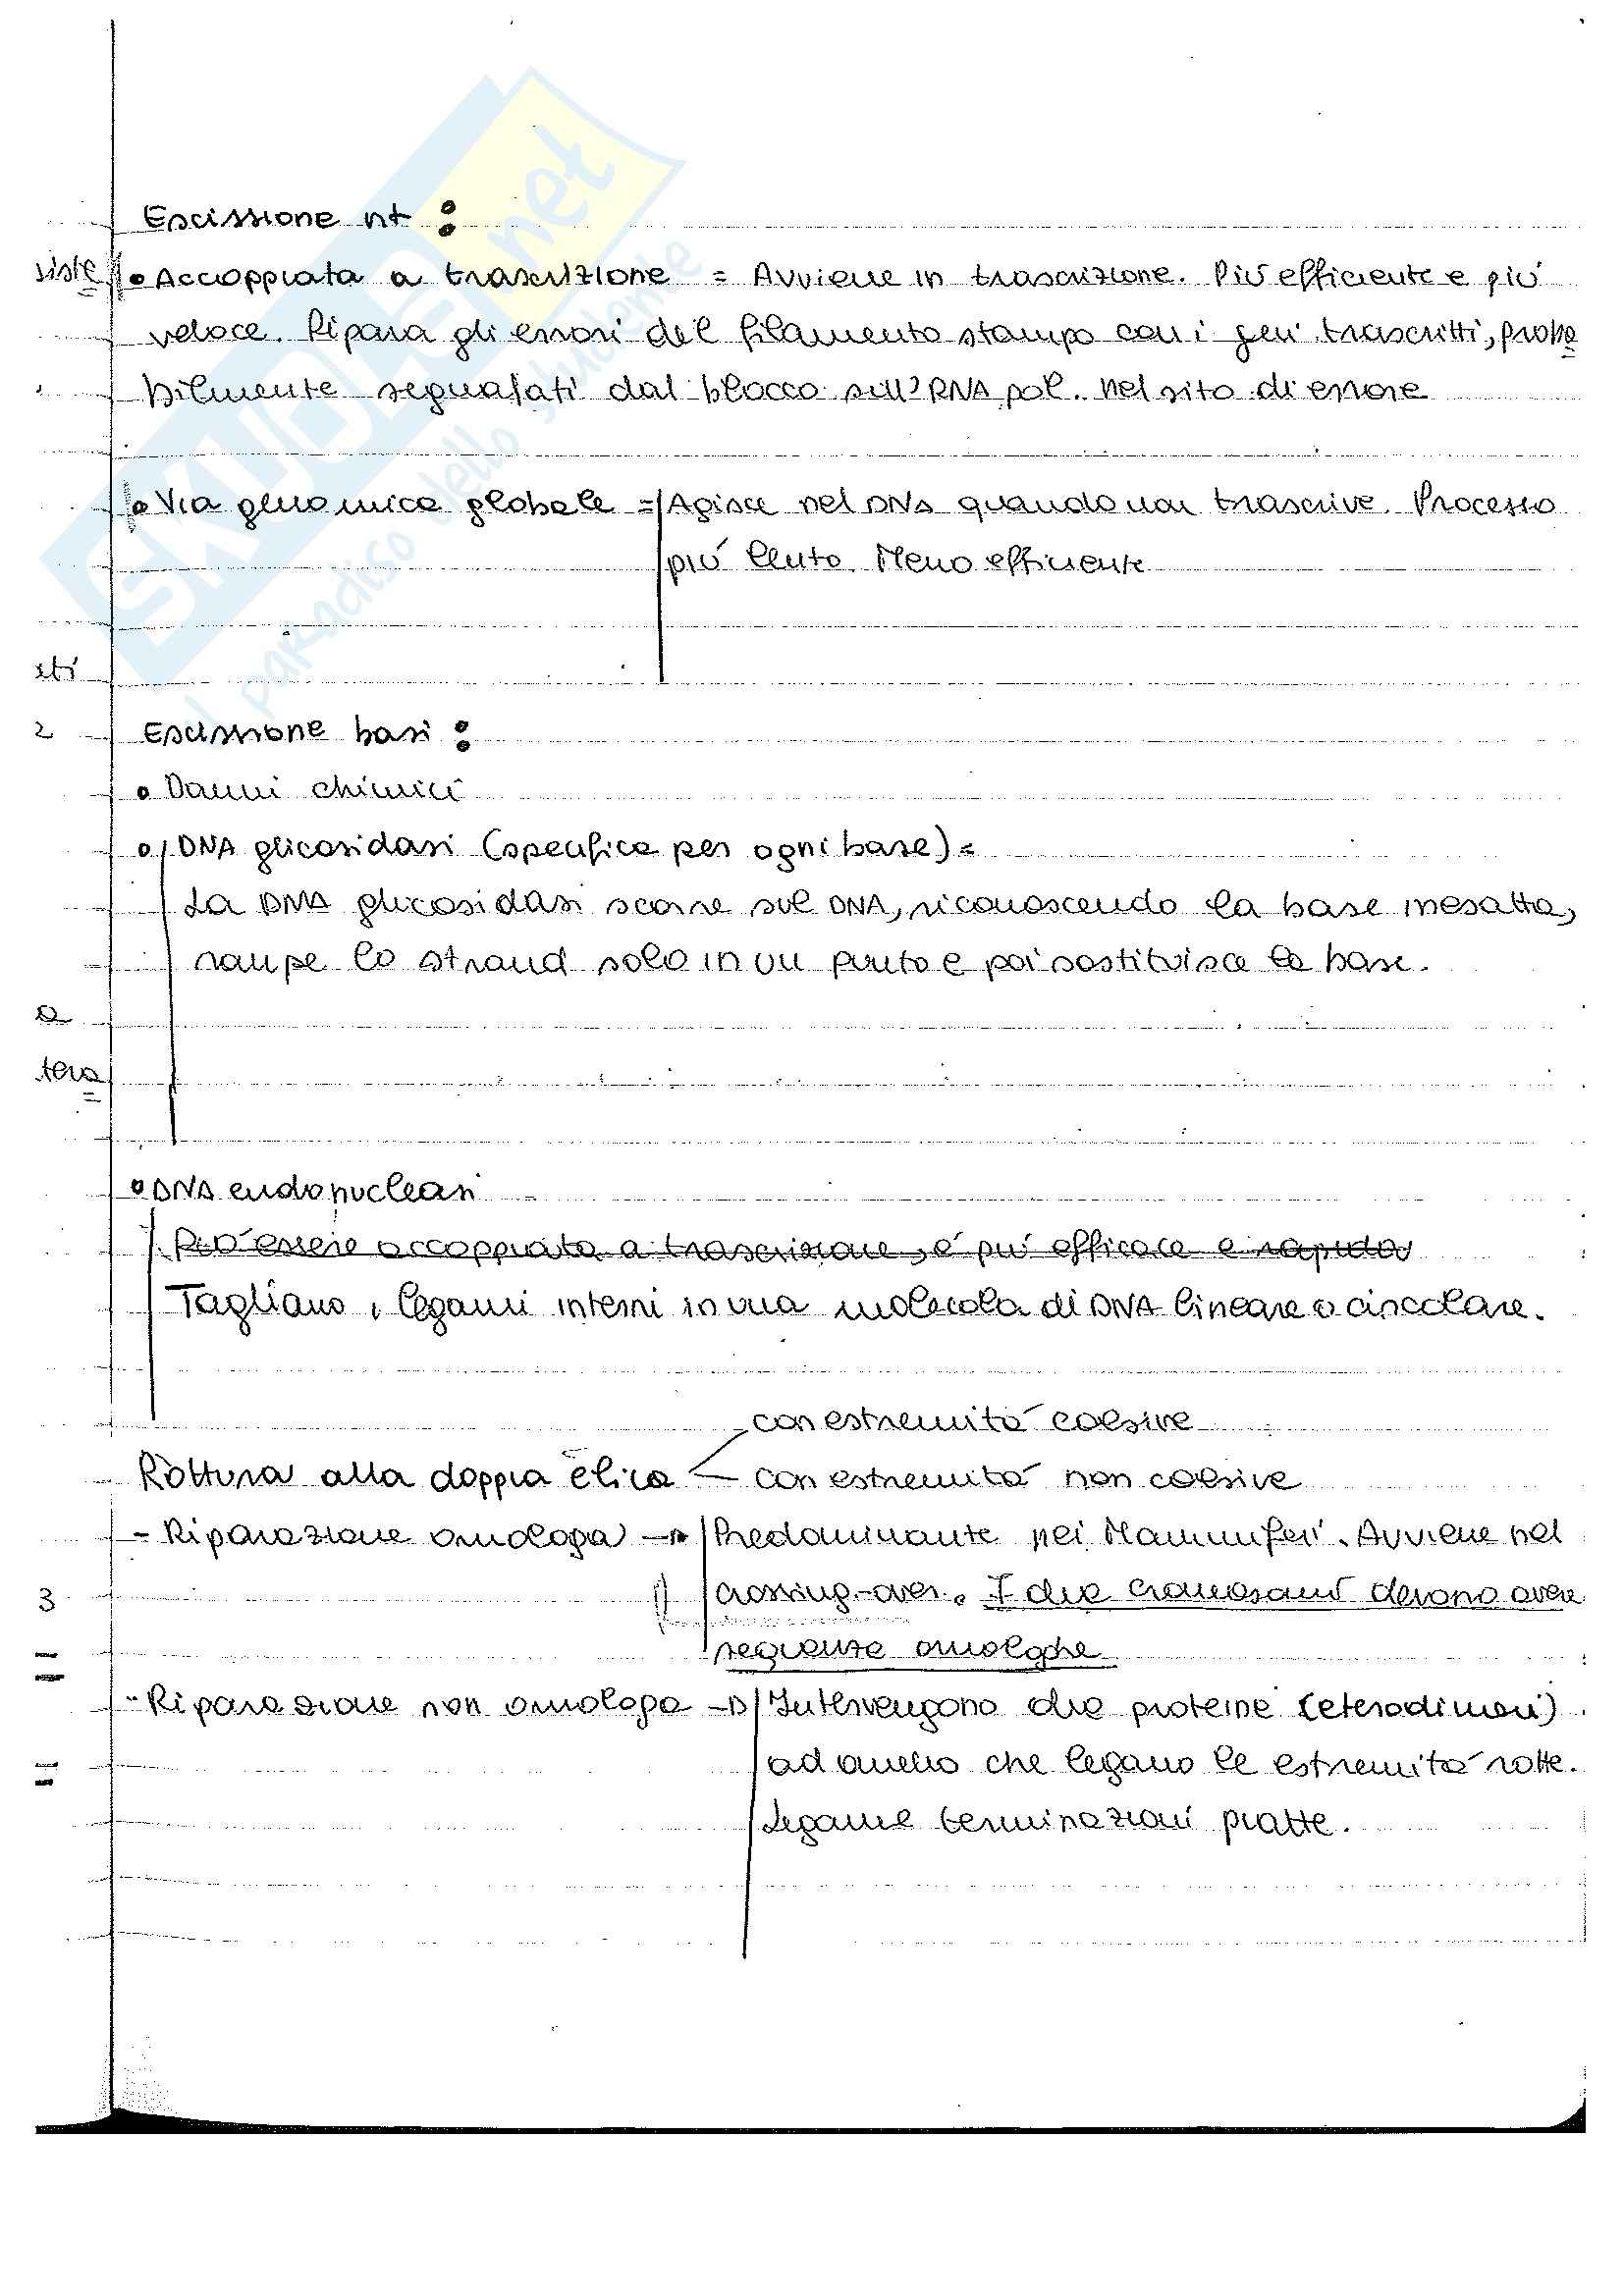 Escissione nt :
siste
• Accoppiata a trascrizione = Avviene in trascrizione. Più efficiente e più
veloce. Ripara gli errori del filamento stampo con i geni trascritti, proba
bilmente segnalati dal blocco sull'RNA pol. nel sito di errore
• Via genomica globale = Agisce nel DNA quando non trascrive. Processo
più lento. Meno efficiente
sti
2
Escissione basi :
• Danni chimici
• DNA glicosidasi (specifica per ogni base) =
La DNA glicosidasi scorre sul DNA, riconoscendo la base inesatta,
rompe lo strand solo in un punto e poi sostituisce la base.
a
tera
• DNA endonucleasi
Può essere accoppiata a trascrizione, è più efficace e rapida
Tagliano i legami interni in una molecola di DNA lineare o circolare.
con estremità coesive
Rottura alla doppia elica
con estremità non coesive
- Riparazione omologa → Predominante nei Mammiferi. Avviene nel
3
crossing-over. I due cromosomi devono avere
sequenze omologhe
- Riparazione non omologa → Intervengono due proteine (eterodimeri)
ad anello che legano le estremità rotte.
Legame terminazioni piatte.
SKUOLA.net
il paradiso dello studente